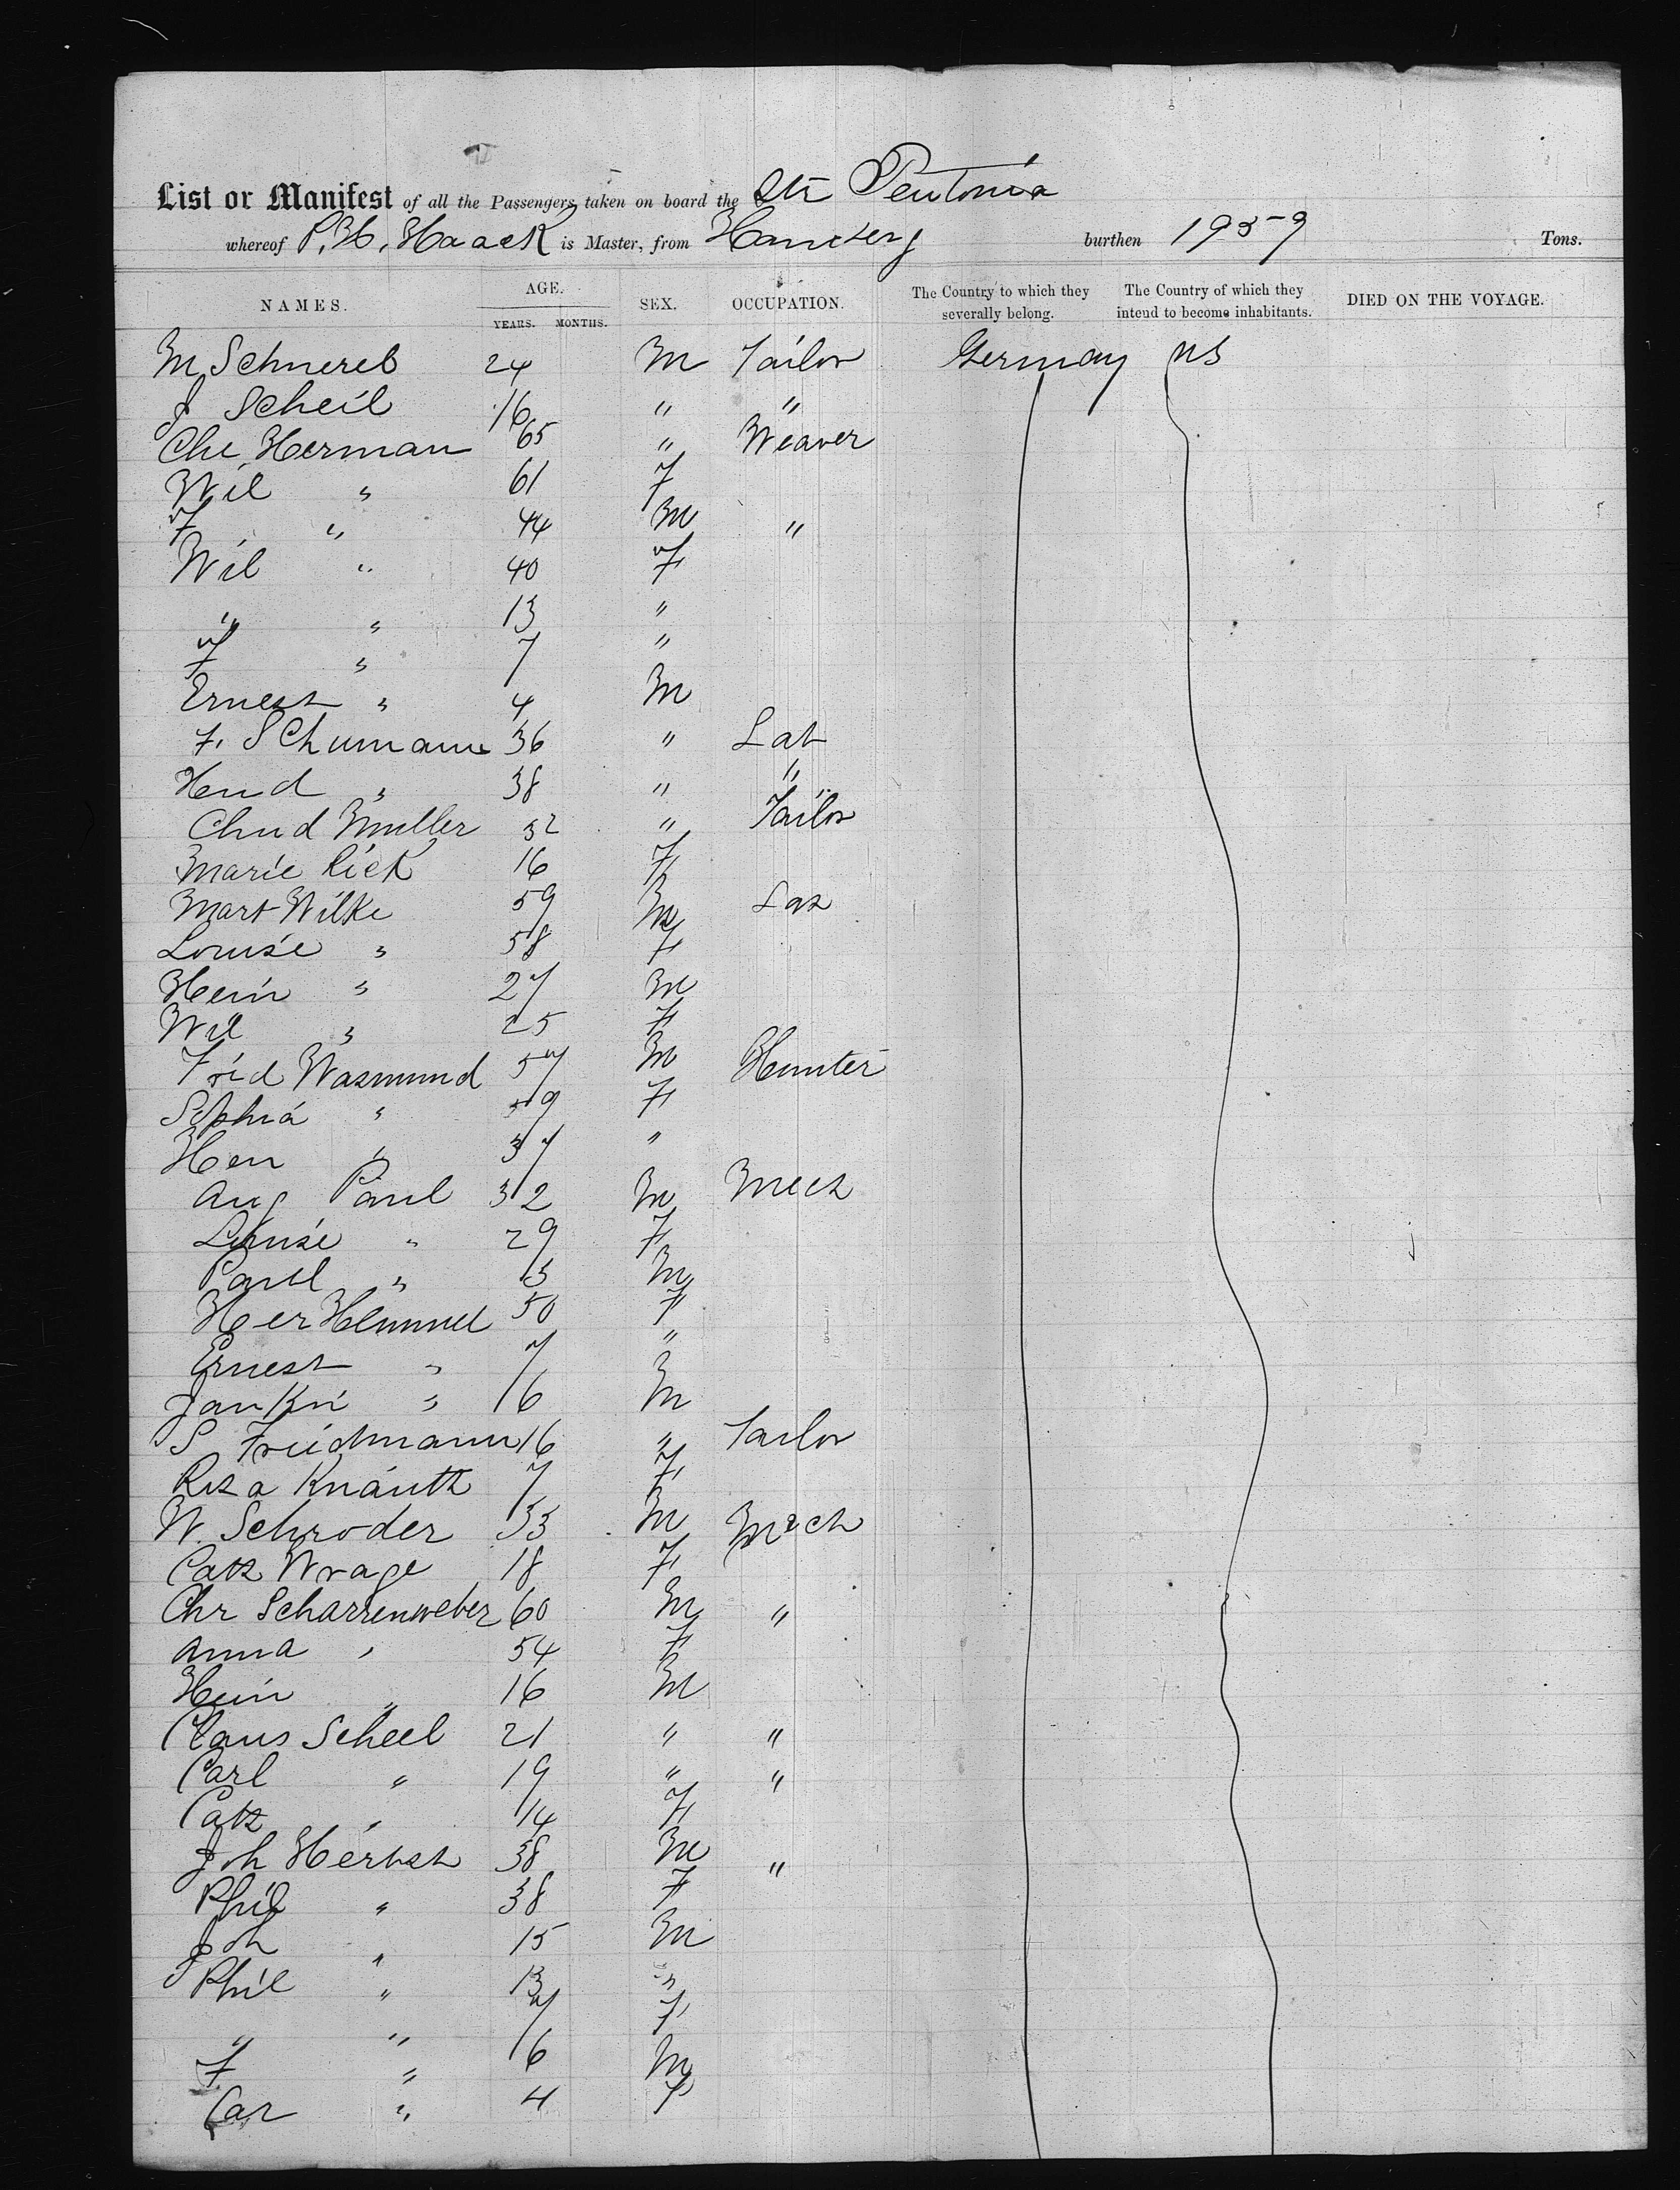 List or Manifest of all the Passengers taken on board the Str Teutonia
whereof P. H. Haack is Master, from Hamberg burthen 1959 Tons.
NAMES. AGE. YEARS. MONTHS. SEX. OCCUPATION. The Country to which they severally belong. The Country of which they intend to become inhabitants. DIED ON THE VOYAGE.
M Schnereb 24 M Tailor Germany US
J Scheil 16 " "
Che Herman 65 " Weaver
Wil " 61 F
F " 44 M "
Wil " 40 F
" " 13 "
F " 7 "
Ernest " 4 M
F. Schumann 36 " Lab
Hend " 38 " "
Chud Muller 32 " Tailor
Marie Rick 16 F
Mart Wilke 59 M Lab
Louise " 58 F
Hein " 27 M
Wil " 25 F
Frid Wasmund 57 M Hunter
Sophia " 59 F
Hen " 37 "
Aug Paul 32 M Mech
Louise " 29 F
Paul " 3 M
Her 50 F
Ernest " 7 "
" 16 M
S Friedmann 16 " Tailor
Rosa Knauth 7 F
W. Schroder 33 M Mech
Cath Wrage 18 F
Chr Scharrenweber 60 M "
Anna " 54 F
Hein " 16 M
Claus Scheel 21 " "
Carl " 19 " "
Cath " 14 F
Joh Herbst 38 M "
Phil " 38 F
Joh " 15 M
Phil " 13 "
" " 7 F
F " 6 M
Car " 4 F